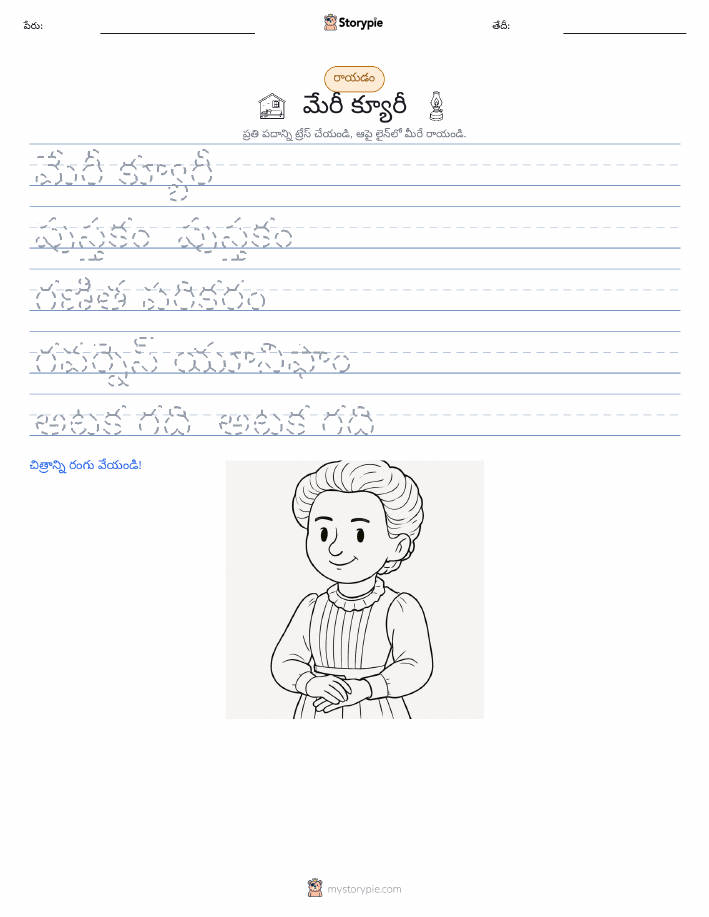 పేరు:
Storypie
తేదీ:
రాయడం
మేరీ క్యూరీ
ప్రతి పదాన్ని ట్రేస్ చేయండి, ఆపై లైన్‌లో మీరే రాయండి.
మేరీ క్యూరీ
పుస్తకం పుస్తకం
గణిత పరికరం
గవర్నెస్ యూనిఫాం
అటక గది అటక గది
చిత్రాన్ని రంగు వేయండి!
mystorypie.com